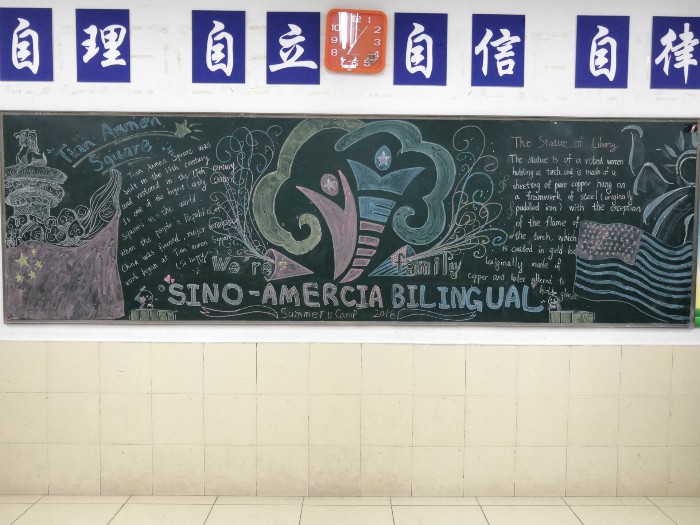 自理 自立 自信 自律
Tian Anmen
Square
Tian Anmen Square was
built in the 15th century
and restored in the 17th century
is one of the largest city
Squares in the world
when the people's Republic of
China was founded, major
work began at Tian anmen
The Statue of Liberty
The statue is of a robed women
holding a torch, and is made of a
sheeting of pure copper hung on
a framework of steel (originally
puddled iron) with the exception
of the flame of
the torch, which
is coated in gold leaf
(originally made of
copper and later altered to
hold glass
We're family
SINO-AMERCIA BILINGUAL
Summer Camp 2018